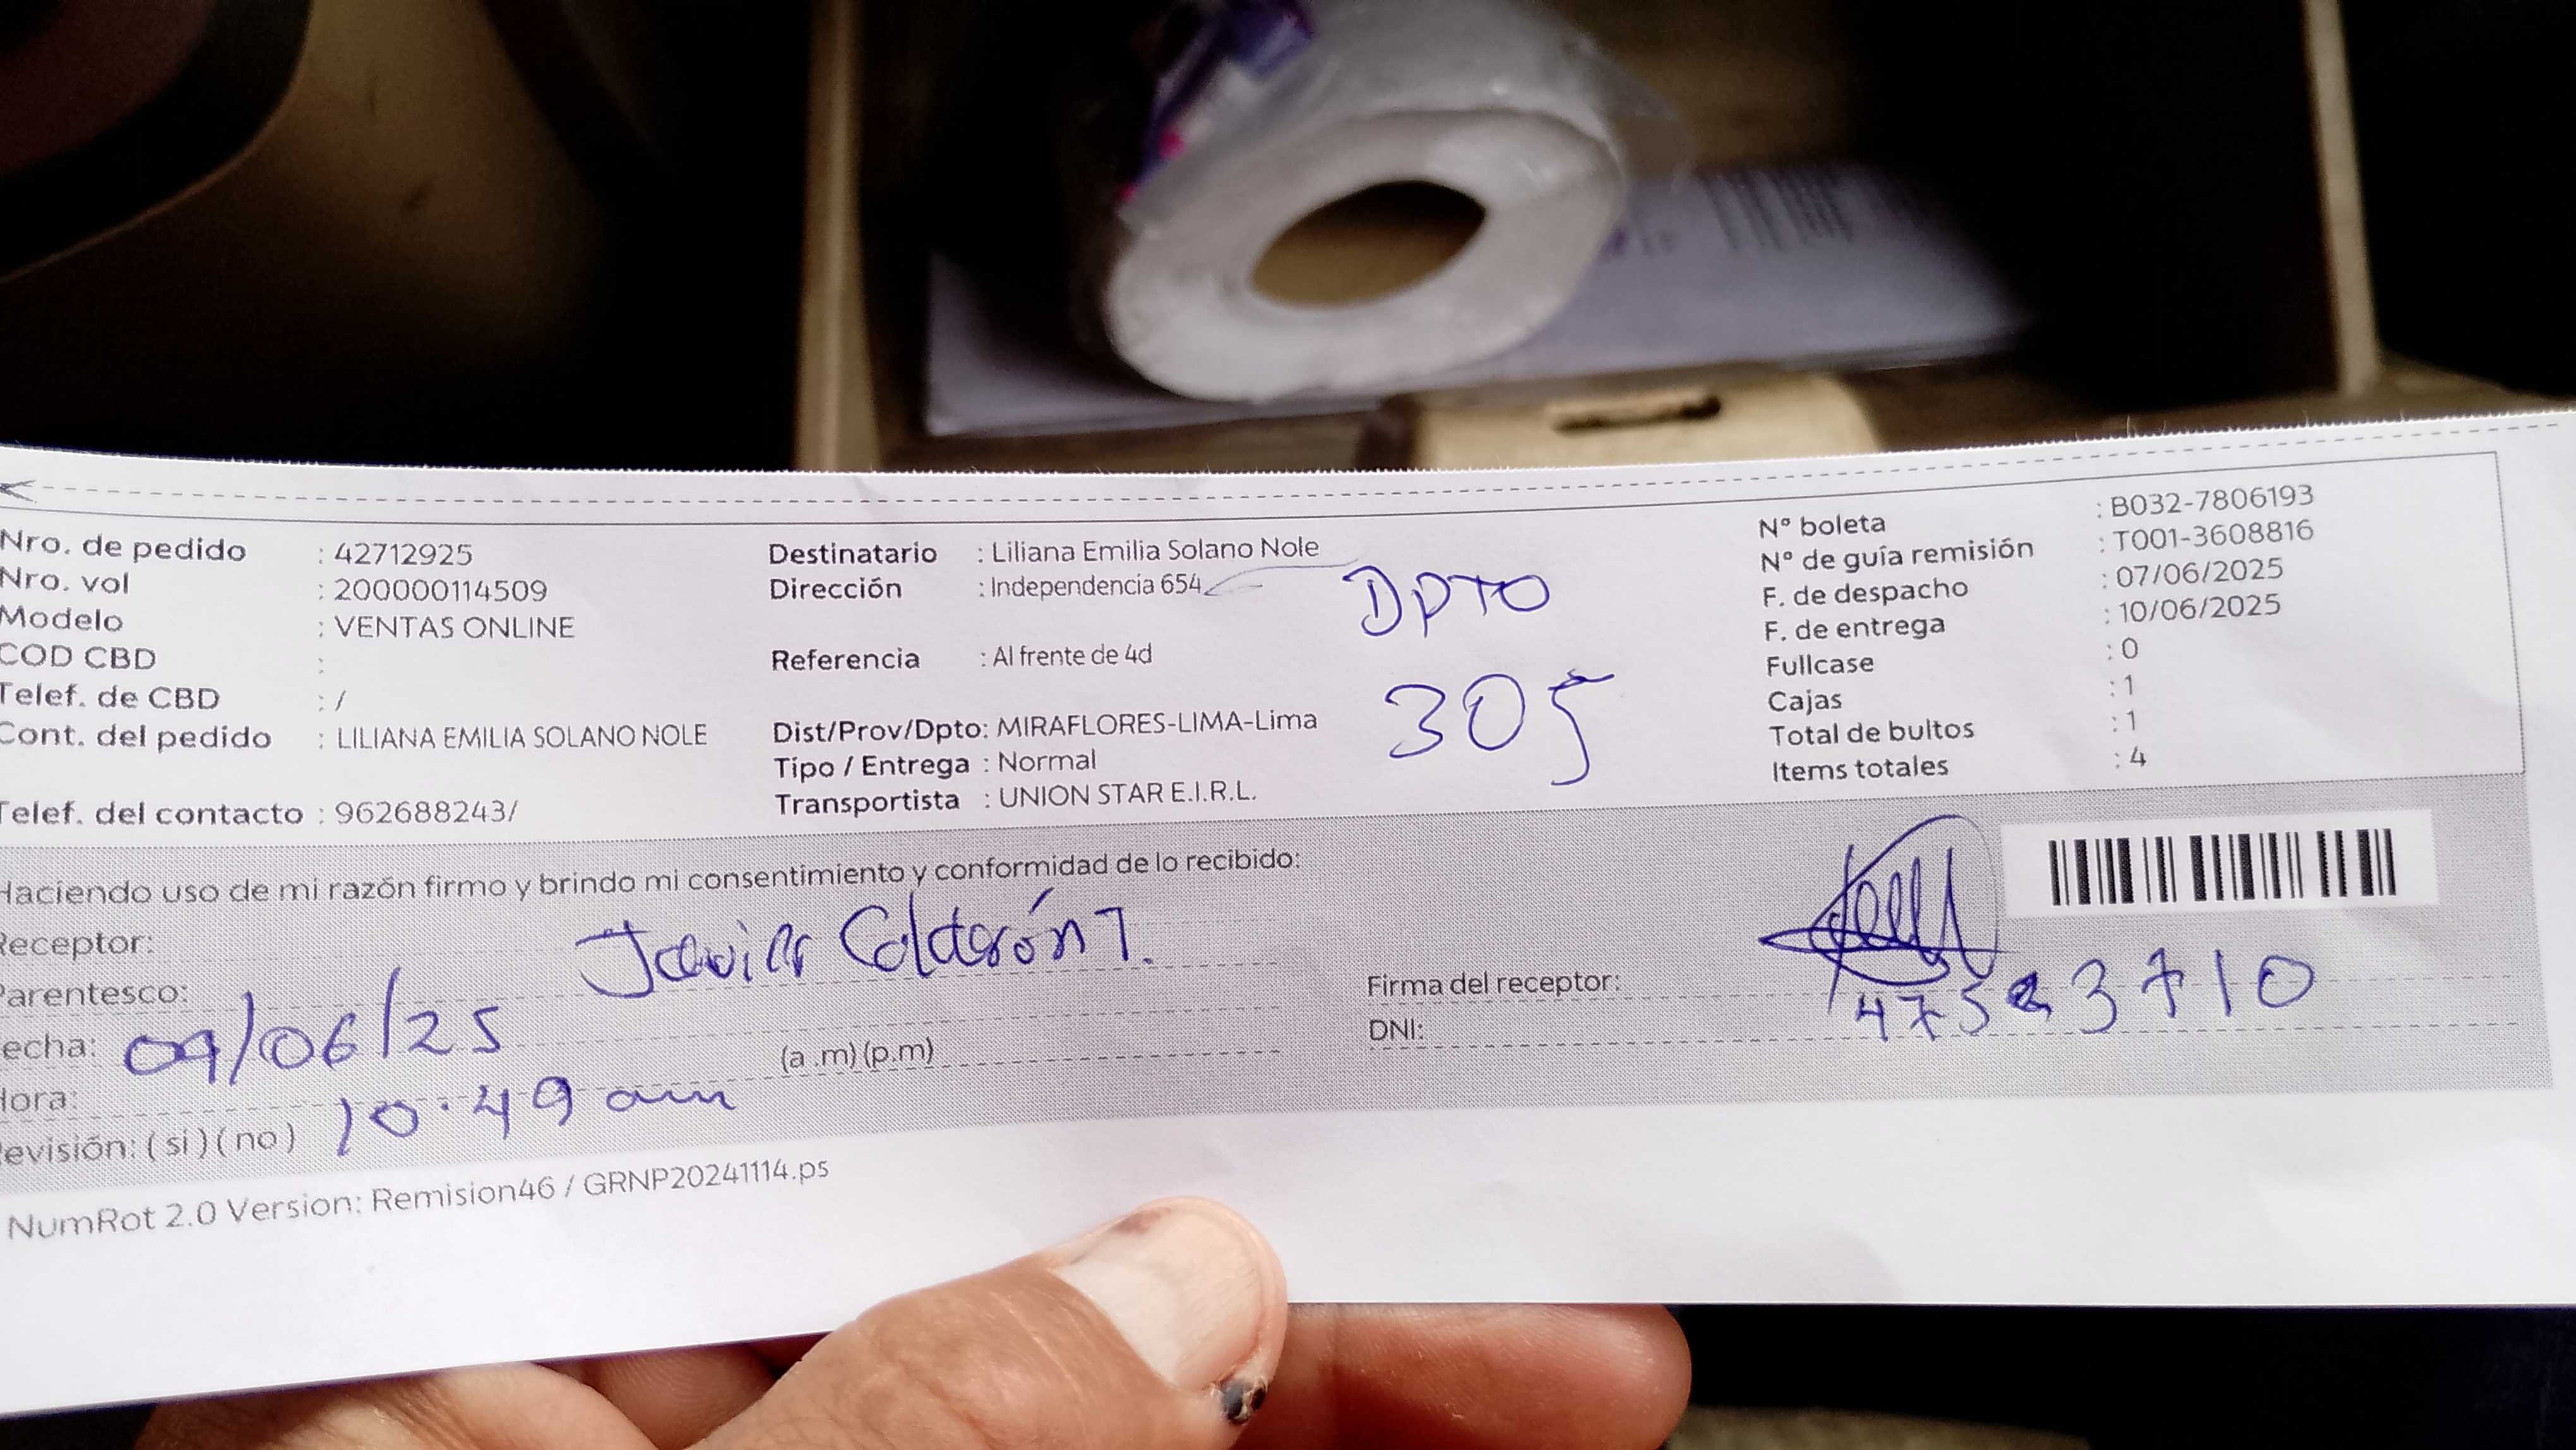 Nro. de pedido : 42712925
Nro. vol : 200000114509
Modelo : VENTAS ONLINE
COD CBD :
Telef. de CBD : /
Cont. del pedido : LILIANA EMILIA SOLANO NOLE
Telef. del contacto : 962688243/
Destinatario : Liliana Emilia Solano Nole
Dirección : Independencia 654
Referencia : Al frente de 4d
Dist/Prov/Dpto: MIRAFLORES-LIMA-Lima
Tipo / Entrega : Normal
Transportista : UNION STAR E.I.R.L.
DPTO
305
N° boleta : B032-7806193
N° de guía remisión : T001-3608816
F. de despacho : 07/06/2025
F. de entrega : 10/06/2025
Fullcase : 0
Cajas : 1
Total de bultos : 1
Items totales : 4
Haciendo uso de mi razón firmo y brindo mi consentimiento y conformidad de lo recibido:
Receptor: Javier Calderón T.
Parentesco:
echa: 09/06/25
(a .m) (p.m)
Hora: 10.49 am
evisión: ( si ) ( no )
Firma del receptor:
DNI:
NumRot 2.0 Version: Remision46 / GRNP20241114.ps